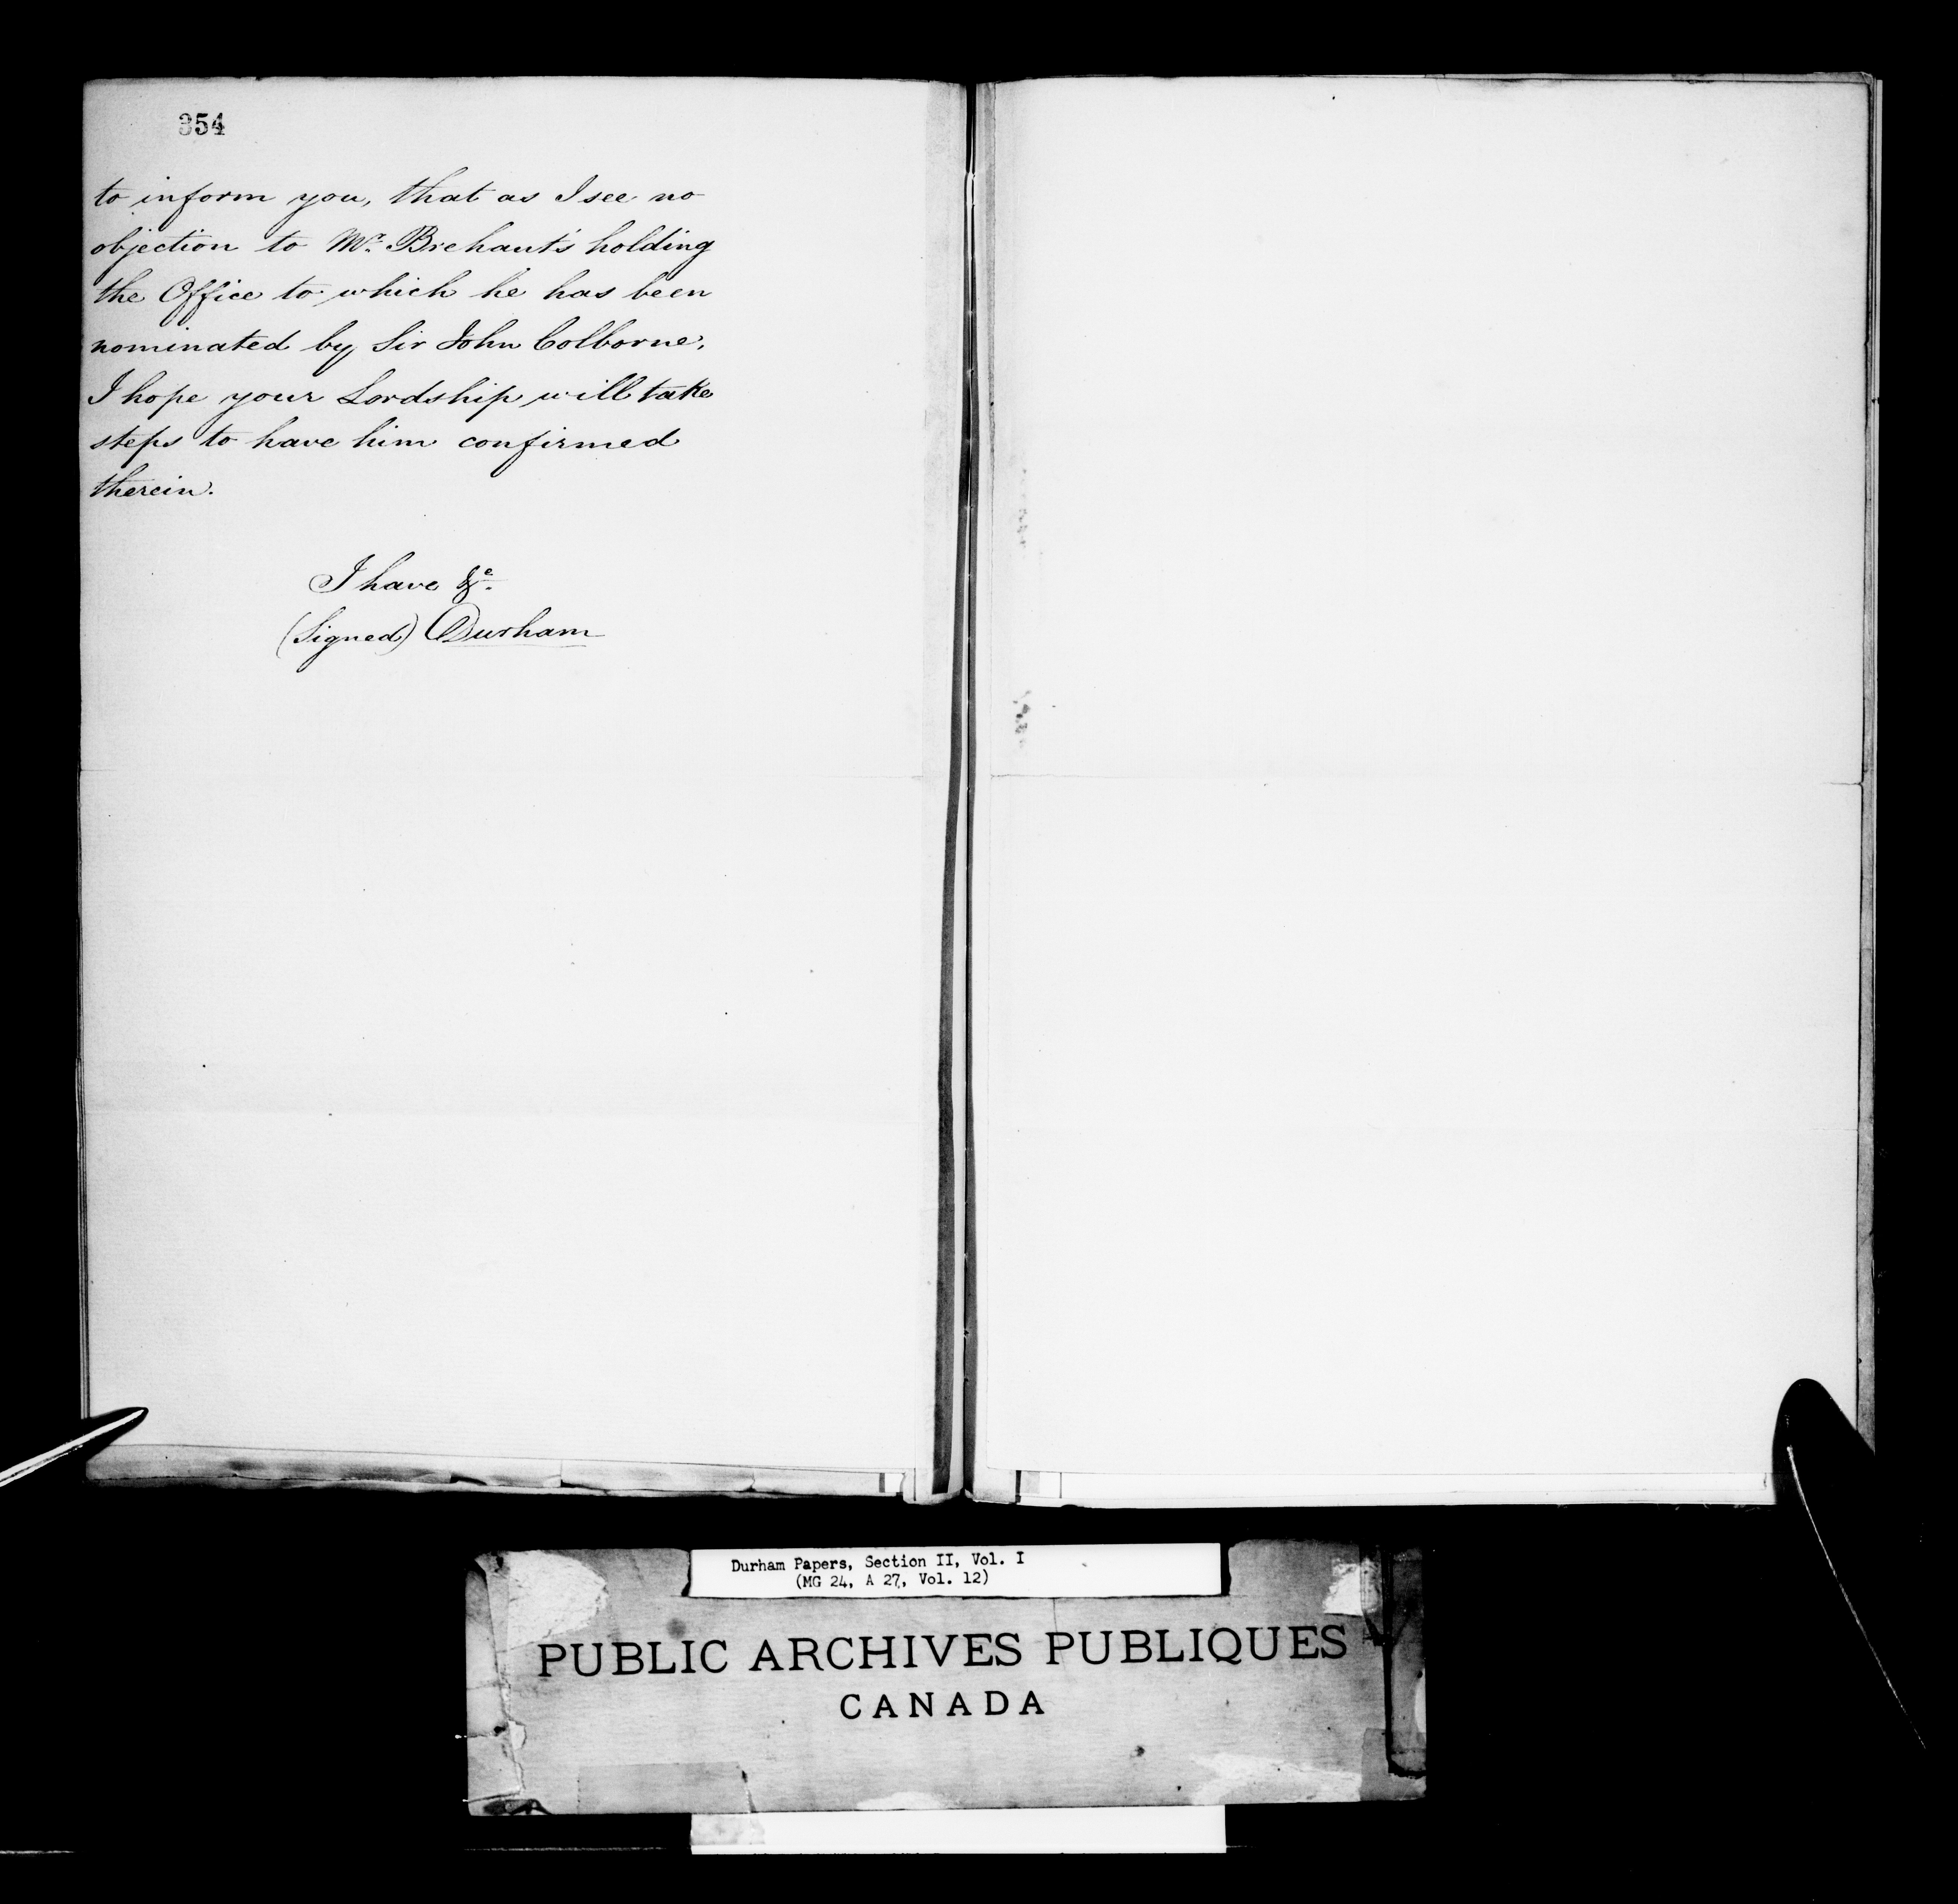 354
to inform you, that as I see no
objection to Mr. Brehaut's holding
the Office to which he has been
nominated by Sir John Colborne,
I hope your Lordship will take
steps to have him confirmed
therein.
I have &c.
(Signed) Durham
Durham Papers, Section II, Vol. I
(MG 24, A 27, Vol. 12)
PUBLIC ARCHIVES PUBLIQUES
CANADA